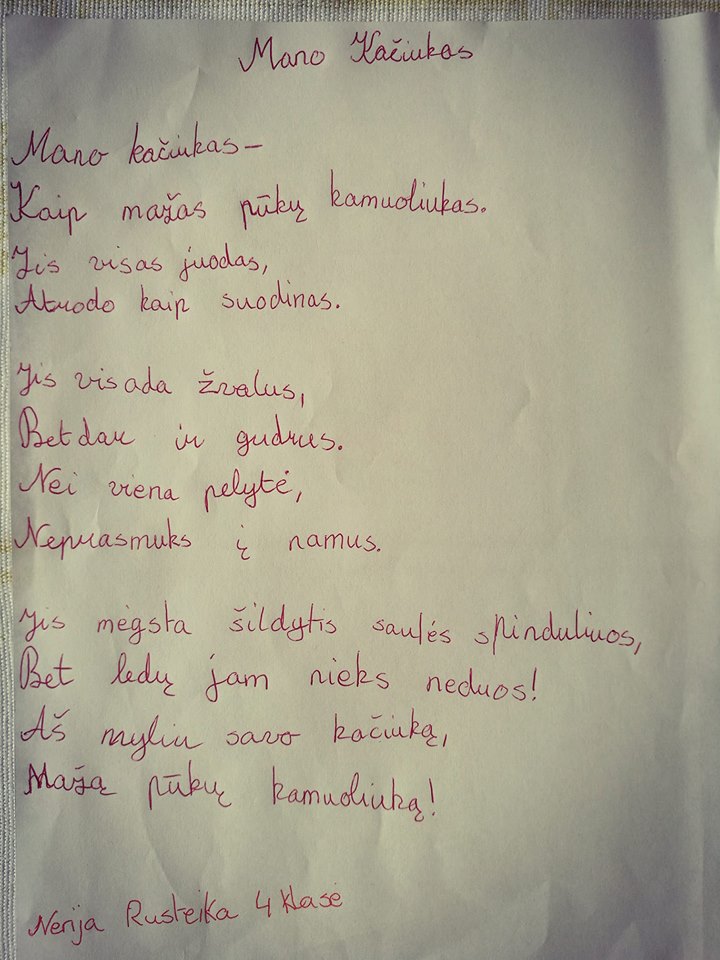 Mano Kačiukas
Mano kačiukas–
Kaip mažas pūkų kamuoliukas.
Jis visas juodas,
Atrodo kaip suodinas.
Jis visada žvalus,
Bet dar ir gudrus.
Nei viena pelytė,
Neprasmuks į namus.
Jis mėgsta šildytis saulės spinduliuos,
Bet ledų jam nieks neduos!
Aš myliu savo kačiuką,
Mažą pūkų kamuoliuką!
Nerija Rusteika 4 klasė